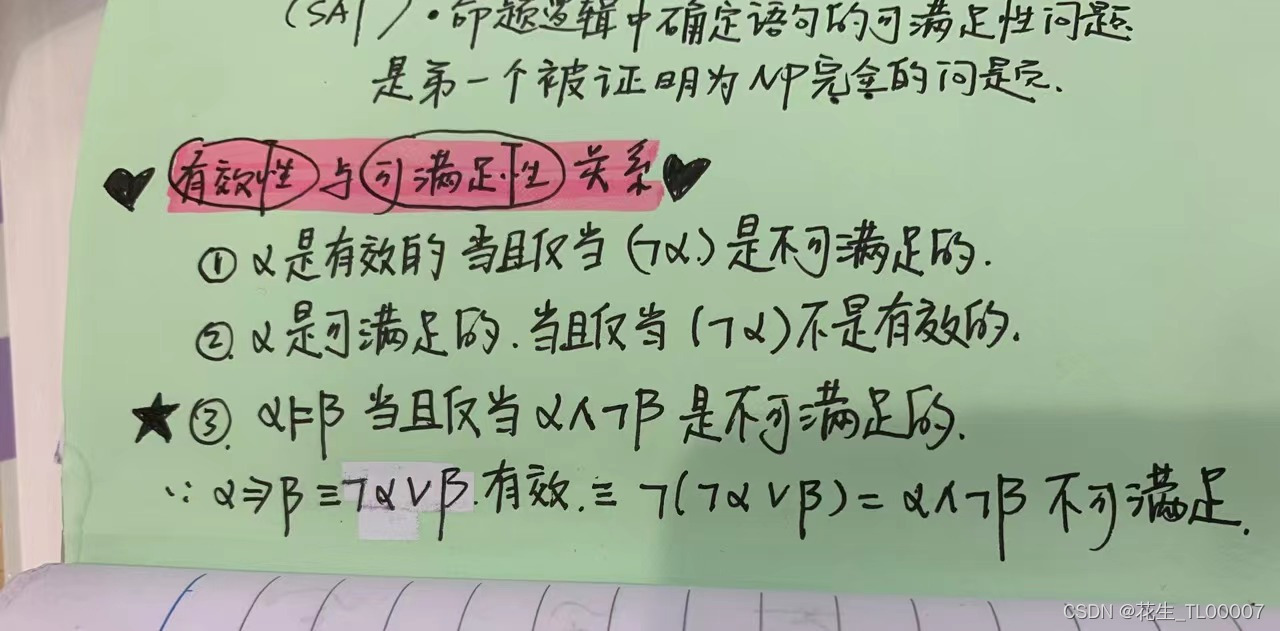 (SAT)·命题逻辑中确定语句的可满足性问题
是第一个被证明为NP完全的问题.
有效性与可满足性关系
① α是有效的 当且仅当 (¬α) 是不可满足的.
②. α是可满足的. 当且仅当 (¬α) 不是有效的.
★ ③. α⊨β 当且仅当 α∧¬β 是不可满足的.
∵ α⇒β ≡ ¬α∨β 有效. ≡ ¬(¬α∨β) = α∧¬β 不可满足.
CSDN @花生_TL00007